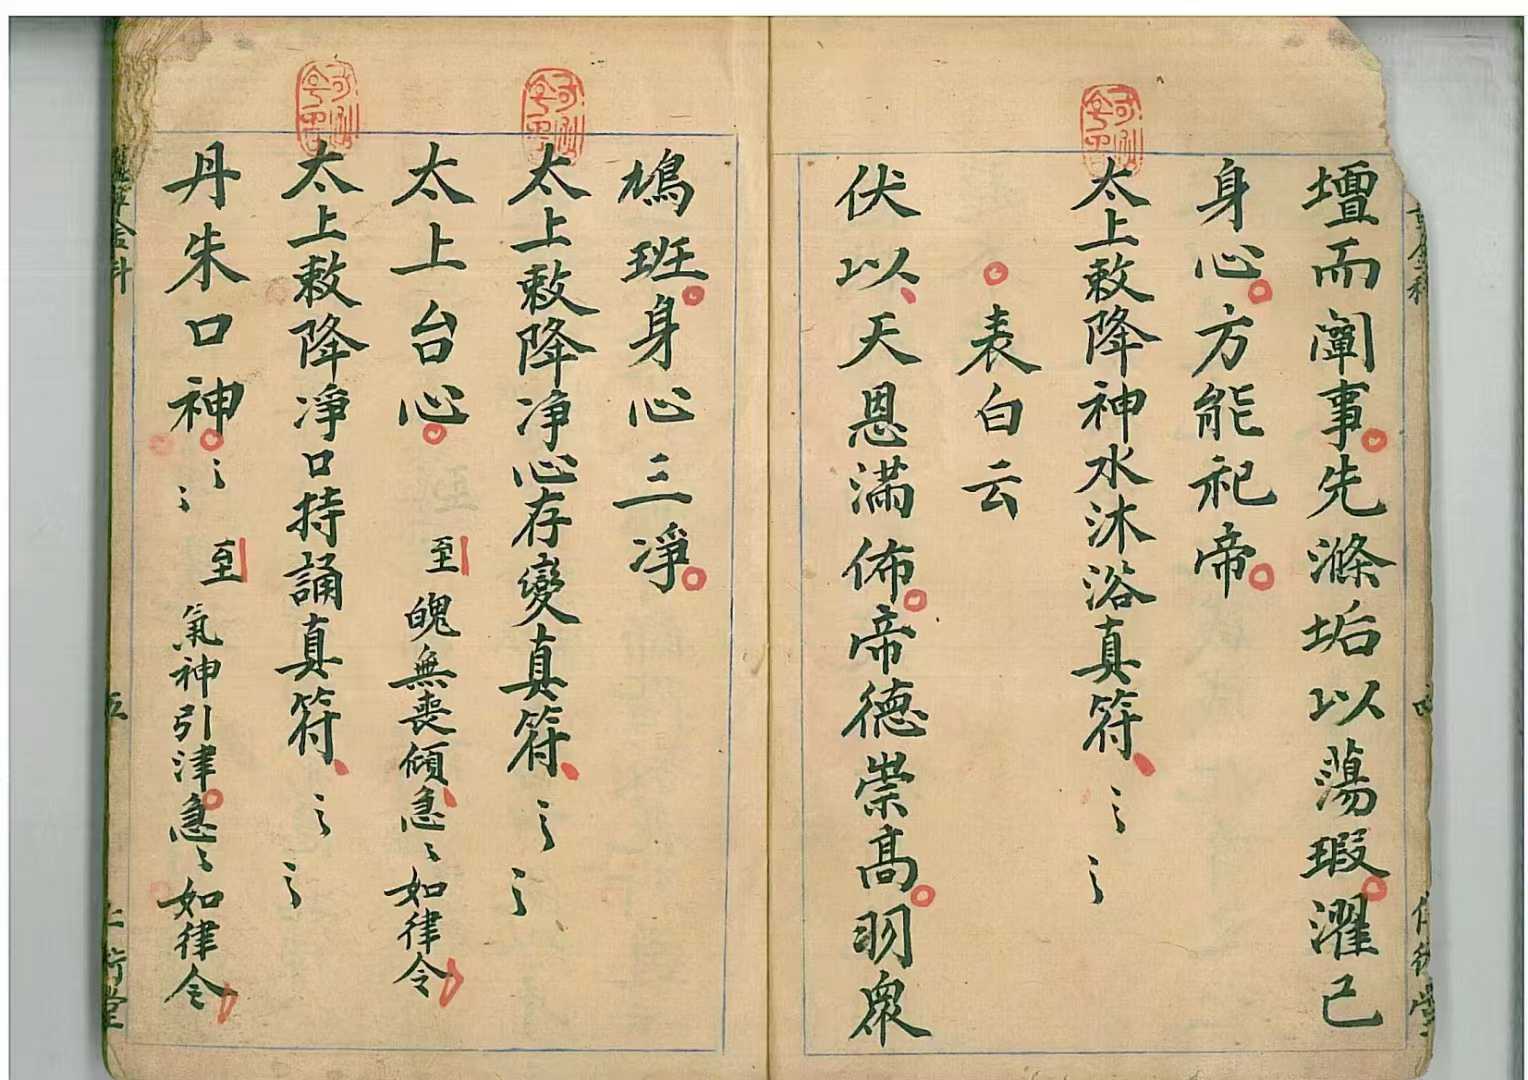 壇而闡事先滌垢以蕩瑕濯己
身心方能祀帝
太上敕降神水沐浴真符〻〻
表白云
伏以天恩滿佈帝德崇高明眾
鳩班身心三淨
太上敕降淨心存變真符〻〻
太上台心 至 魄無喪傾急〻如律令
太上敕降淨口持誦真符〻〻
丹朱口神〻〻 至 氣神引津急〻如律令